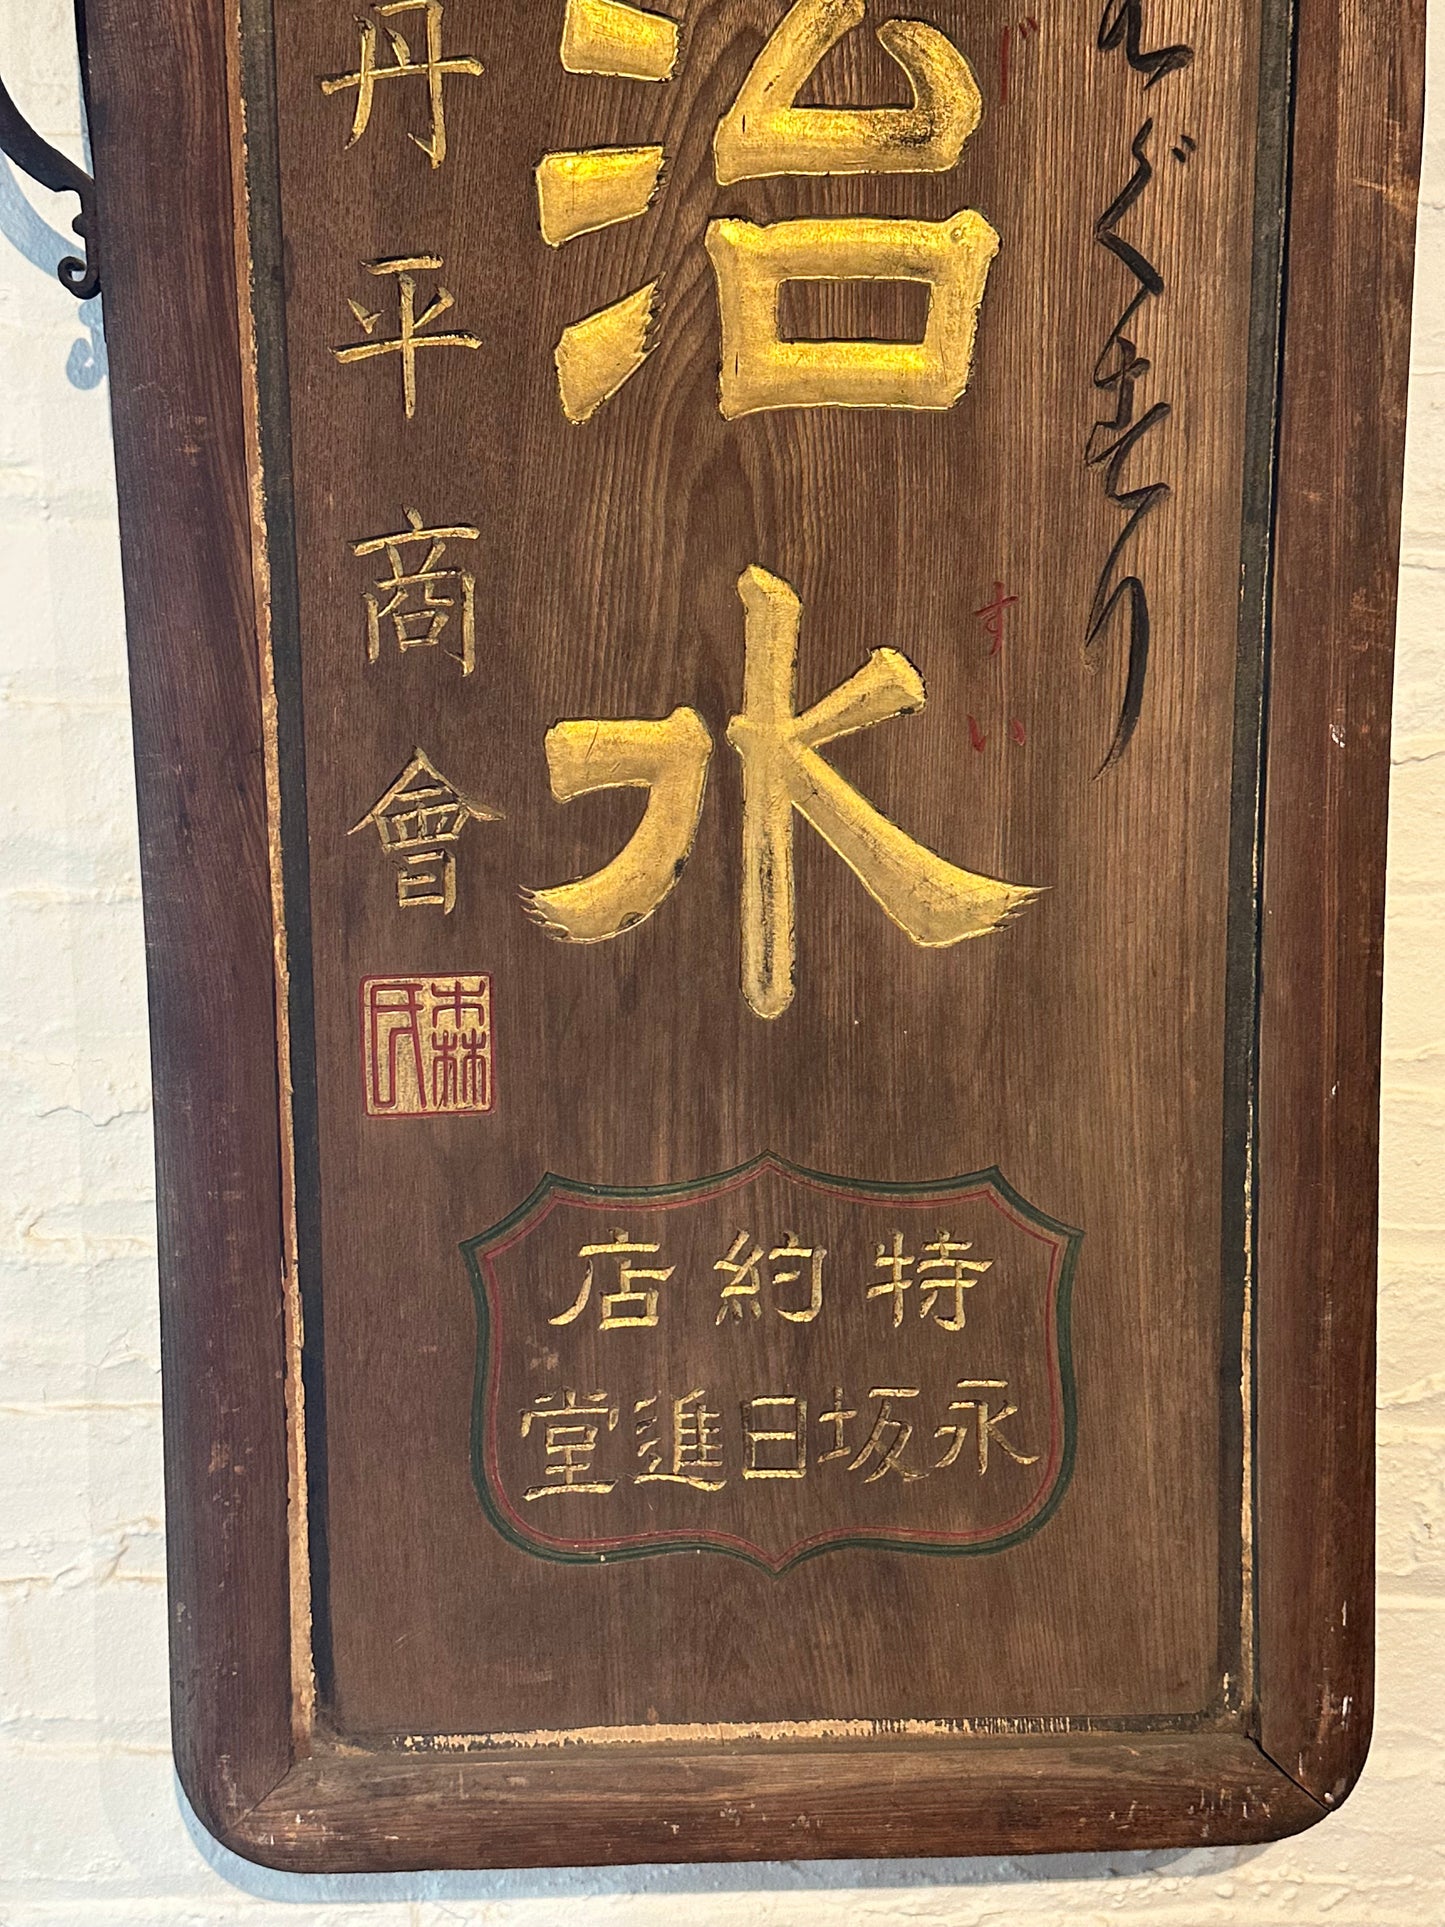 ぐすり
じ
すい
治水
丹平商會
森氏
特約店
永坂日進堂